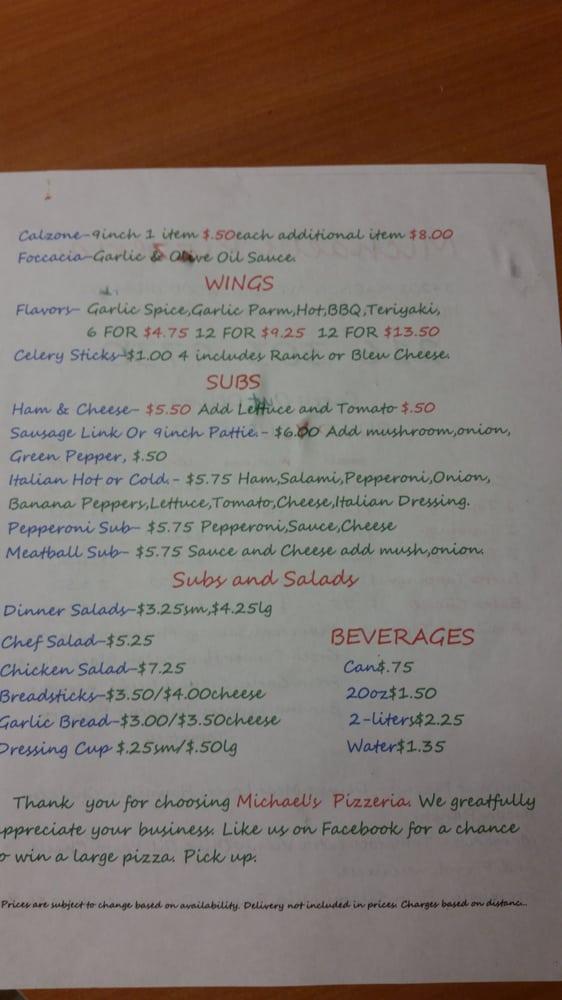 Calzone-9inch 1 item $.50each additional item $8.00
Foccacia-Garlic & Olive Oil Sauce.
WINGS
Flavors- Garlic Spice,Garlic Parm,Hot,BBQ,Teriyaki,
6 FOR $4.75 12 FOR $9.25 12 FOR $13.50
Celery Sticks-$1.00 4 includes Ranch or Bleu Cheese.
SUBS
Ham & Cheese- $5.50 Add Lettuce and Tomato $.50
Sausage Link Or 9inch Pattie.- $6.00 Add mushroom,onion,
Green Pepper, $.50
Italian Hot or Cold.- $5.75 Ham,Salami,Pepperoni,Onion,
Banana Peppers,Lettuce,Tomato,Cheese,Italian Dressing.
Pepperoni Sub- $5.75 Pepperoni,Sauce,Cheese
Meatball Sub- $5.75 Sauce and Cheese add mush,onion.
Subs and Salads
Dinner Salads-$3.25sm,$4.25lg
Chef Salad-$5.25
Chicken Salad-$7.25
Breadsticks-$3.50/$4.00cheese
Garlic Bread-$3.00/$3.50cheese
Dressing Cup $.25sm/$.50lg
BEVERAGES
Can$.75
20oz$1.50
2-liters$2.25
Water$1.35
Thank you for choosing Michael's Pizzeria. We greatfully
ppreciate your business. Like us on Facebook for a chance
o win a large pizza. Pick up.
Prices are subject to change based on availability. Delivery not included in prices. Charges based on distanc..